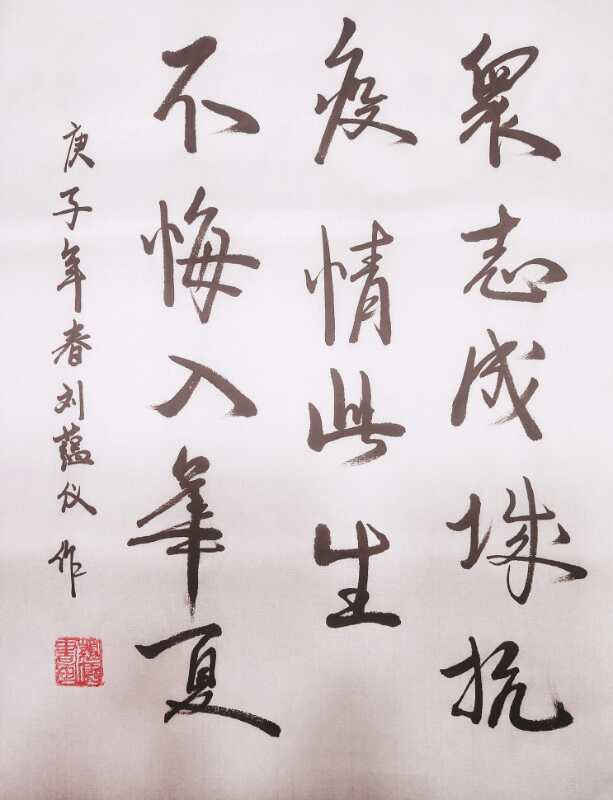 眾志成城抗
疫情此生
不悔入華夏
庚子年春刘蕴仪作